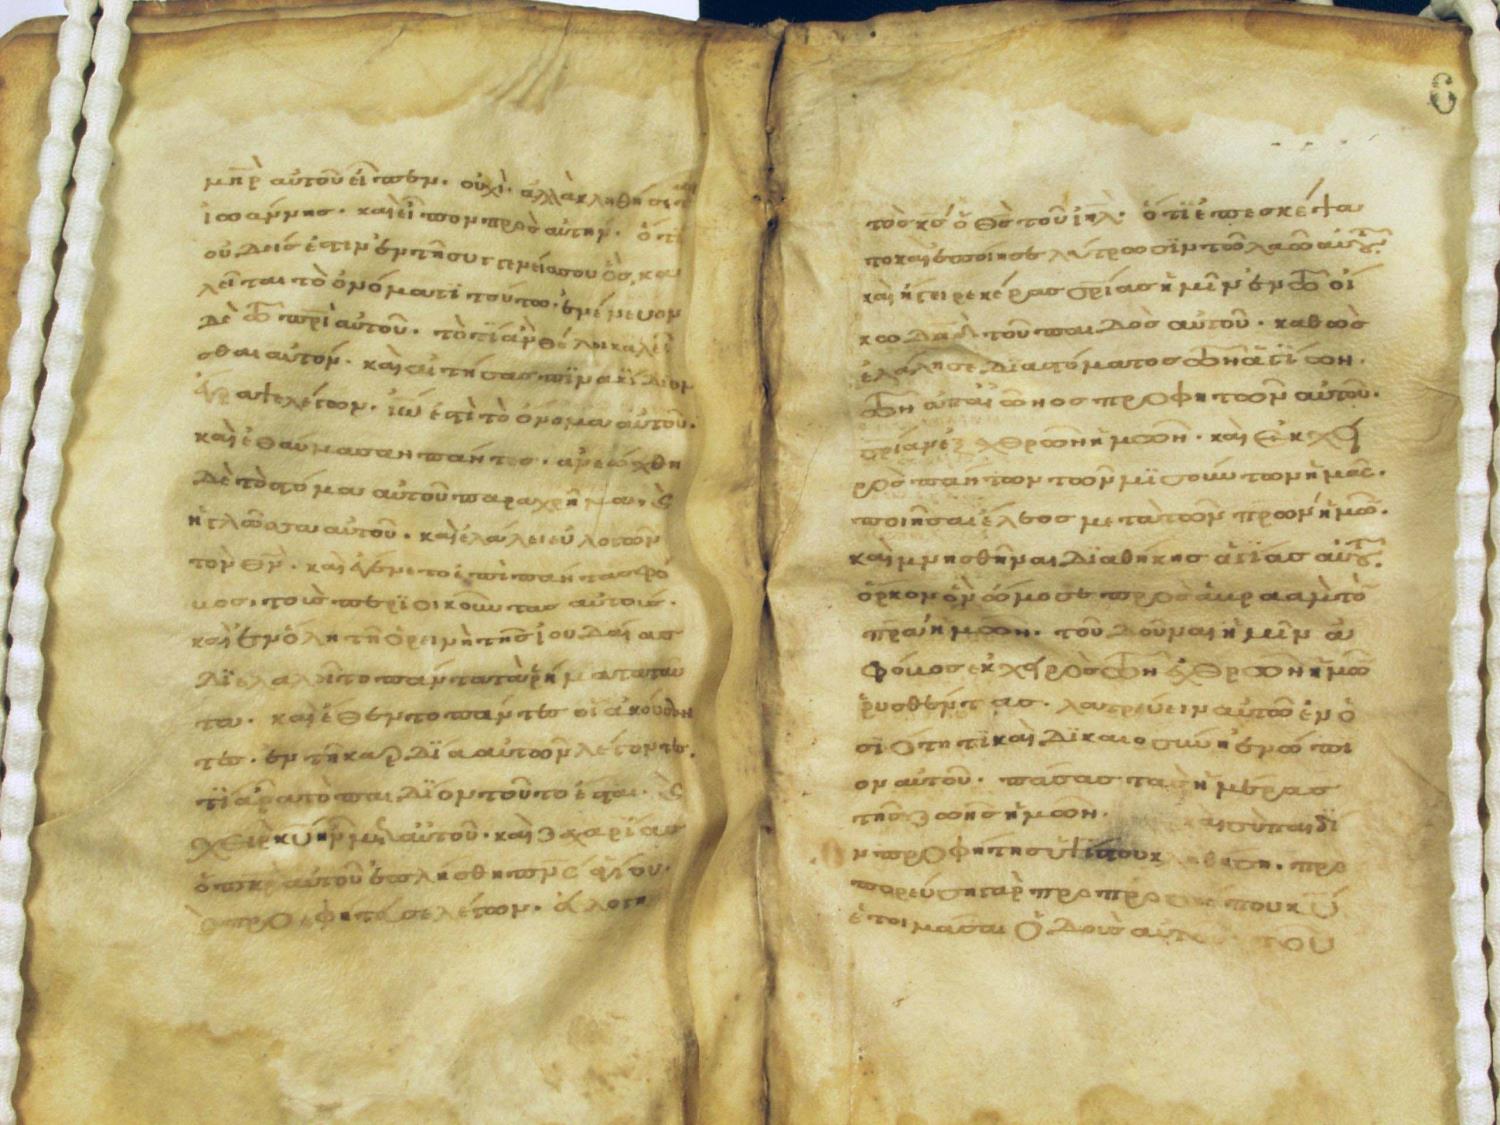 μη̅ρ̅ αὐτοῦ εἶπεν· οὐχὶ· ἀλλὰ κληθήσεται
ἰωάννης· καὶ εἶπον πρὸς αὐτὴν· ὅτι
οὐδείς ἐστιν ἐν τῆ συγγενεία σου ὃς κα
λεῖται τὸ ὀνόματι τούτω· ἐνένευον
δὲ τῶ π̅ρ̅ι̅ αὐτοῦ· τὸ τί ἂν θέλη καλεῖ
σθαι αὐτόν· καὶ αἰτήσας πϊνακίδιον
ἔγραψε λέγων· ἰω̅ ἐστὶ τὸ ὄνομα αὐτοῦ·
καὶ ἐθαύμασαν πάντες· ἀνεώχθη
δὲ τὸ στόμα αὐτοῦ παραχρῆμα, ϗ
ἡ γλῶσσα αὐτοῦ· καὶ ἐλάλει εὐλογῶν
τὸν θ̅ν̅· καὶ ἐγένετο ἐπὶ πάντας φό
βος, τοὺς περϊοικοῦντας αὐτούς·
καὶ ἐν ὅλη τῆ ὀρεινῆ τῆς ἰουδαίας
δϊελαλεῖτο πάντα τὰ ῥήματα ταῦ
τα· καὶ ἔθεντο πάντες οἱ ἀκούσαν
τες· ἐν τῆ καρδία αὐτῶν λέγοντες·
τί ἄρα τὸ παιδϊον τοῦτο ἔσται· ϗ
χεὶρ κ̅υ̅ ἦν μετ αὐτοῦ· καὶ ζαχαρίας
ὁ π̅η̅ρ̅ αὐτοῦ ἐπλήσθη π̅ν̅ς̅ ἁγίου·
ϗ προεφήτευσε λέγων· εὐλογη
τὸς κ̅ς̅ ὁ θ̅ς̅ τοῦ ι̅η̅λ̅· ὅτι ἐπεσκέψα
το καὶ ἐποίησε λύτρωσϊν τῶ λαῶ αὐτοῦ·
καὶ ἤγειρε κέρας σρίας ἡμῖν ἐν τῶ οἴ
κω δα̅δ̅ τοῦ παιδὸς αὐτοῦ· καθὼς
ἐλάλησε διὰ στόματος τῶν ἁγίων·
τῶν ἀπ αἰῶνος προφητῶν αὐτοῦ·
σρίαν ἐξ ἐχθρῶν ἡμῶν· καὶ ἐκ χει
ρὸς πάντων τῶν μϊσούντων ἡμᾶς·
ποιῆσαι ἔλεος μετὰ τῶν π̅ρ̅ων ἡμῶν·
καὶ μνησθῆναι διαθήκης ἁγίας αὐτοῦ·
ὅρκον ὃν ὤμοσε πρὸς ἀβραὰμ τὸν
π̅ρ̅α ἡμῶν· τοῦ δοῦναι ἡμῖν ἀ
φόβως ἐκ χειρὸς τῶν ἐχθρῶν ἡμῶν
ῥυσθέντας· λατρεύειν αὐτῶ ἐν ὁ
σιότητϊ καὶ δϊκαιοσύνη ἐνώπι
ον αὐτοῦ· πάσας τὰς ἡμέρας
τῆς ζωῆς ἡμῶν· καὶ σὺ παιδί
ον προφήτης ὑψίστου κληθήση· προ
πορεύση γὰρ πρὸ προσώπου κ̅υ̅
ἑτοιμάσαι ὁδοὺς αὐτοῦ· τοῦ